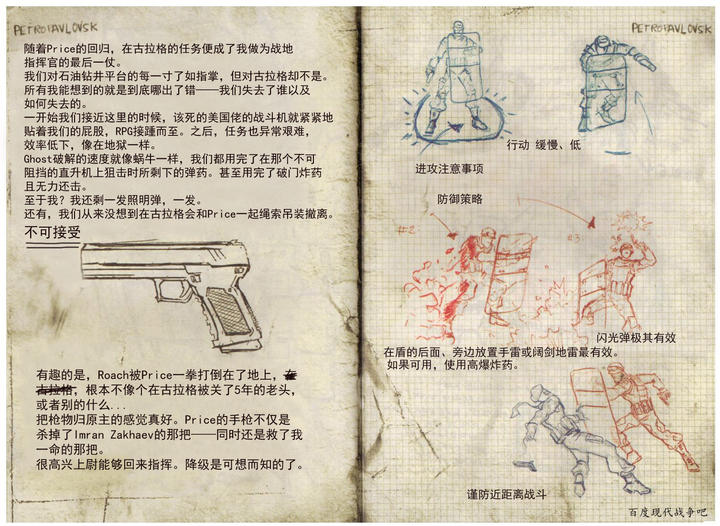 PETROPAVLOVSK
随着Price的回归，在古拉格的任务便成了我做为战地
指挥官的最后一仗。
我们对石油钻井平台的每一寸了如指掌，但对古拉格却不是。
所有我能想到的就是到底哪出了错——我们失去了谁以及
如何失去的。
一开始我们接近这里的时候，该死的美国佬的战斗机就紧紧地
贴着我们的屁股，RPG接踵而至。之后，任务也异常艰难，
效率低下，像在地狱一样。
Ghost破解的速度就像蜗牛一样，我们都用完了在那个不可
阻挡的直升机上狙击时所剩下的弹药。甚至用完了破门炸药
且无力还击。
至于我？我还剩一发照明弹，一发。
还有，我们从来没想到在古拉格会和Price一起绳索吊装撤离。
不可接受
有趣的是，Roach被Price一拳打倒在了地上，在
古拉格，根本不像个在古拉格被关了5年的老头，
或者别的什么...
把枪物归原主的感觉真好。Price的手枪不仅是
杀掉了Imran Zakhaev的那把——同时还是救了我
一命的那把。
很高兴上尉能够回来指挥。降级是可想而知的了。
PETROPAVLOVSK
行动 缓慢、低
进攻注意事项
防御策略
#2
#3
闪光弹极其有效
在盾的后面、旁边放置手雷或阔剑地雷最有效。
如果可用，使用高爆炸药。
谨防近距离战斗
百度现代战争吧